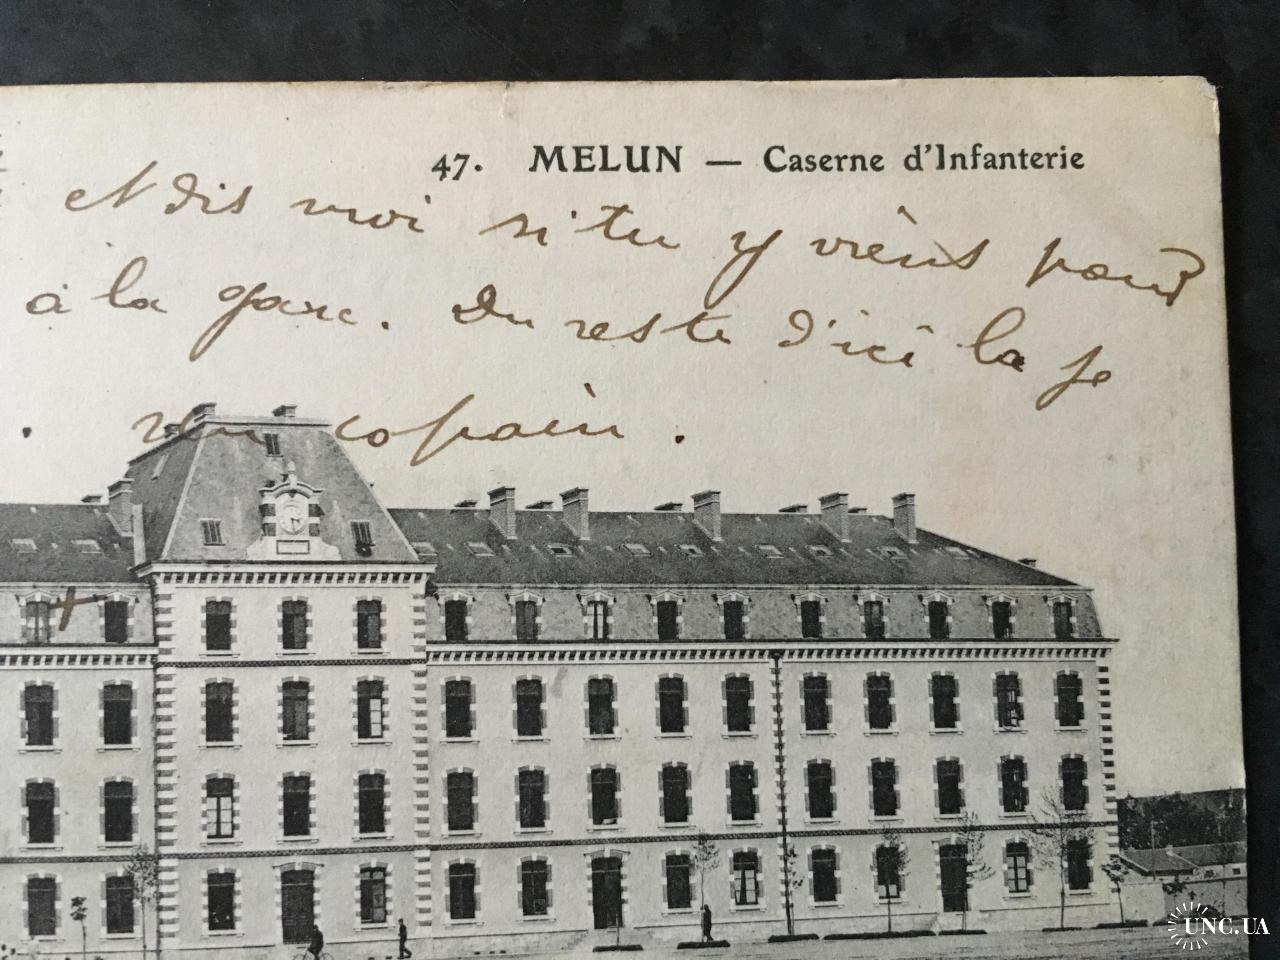 47. MELUN — Caserne d'Infanterie
et dis moi si tu y viens pour
à la gare. Du reste d'ici la je
un copain.
UNC.UA